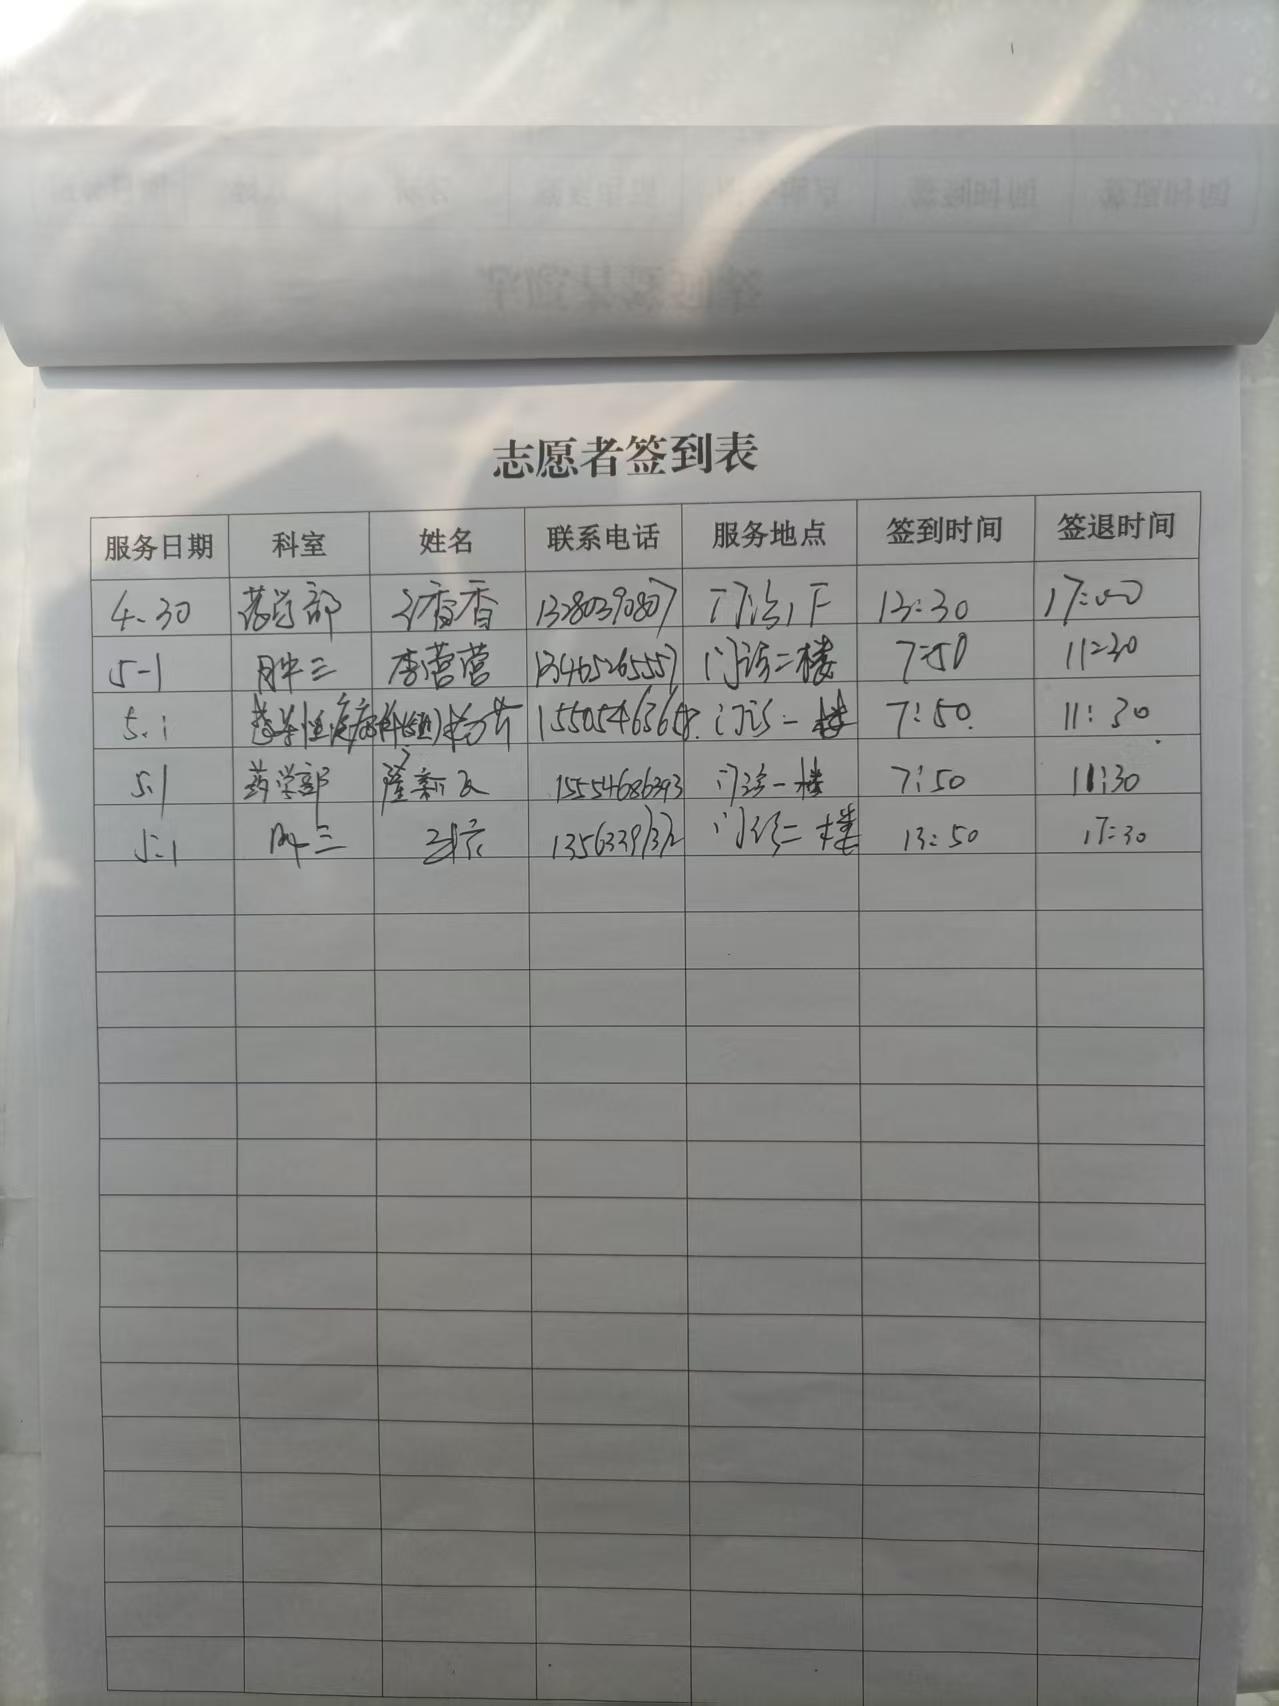 志愿者签到表
服务日期 科室 姓名 联系电话 服务地点 签到时间 签退时间
4.30 药学部 香香 13280390807 门诊 13:30 17:00
5-1 肿三 李营营 13465265557 门诊二楼 7:50 11:30
5.1 慢性 门诊一楼 7:50 11:30
5.1 药学部 15554686393 门诊一楼 7:50 11:30
5.1 肿三 门诊二楼 13:50 17:30